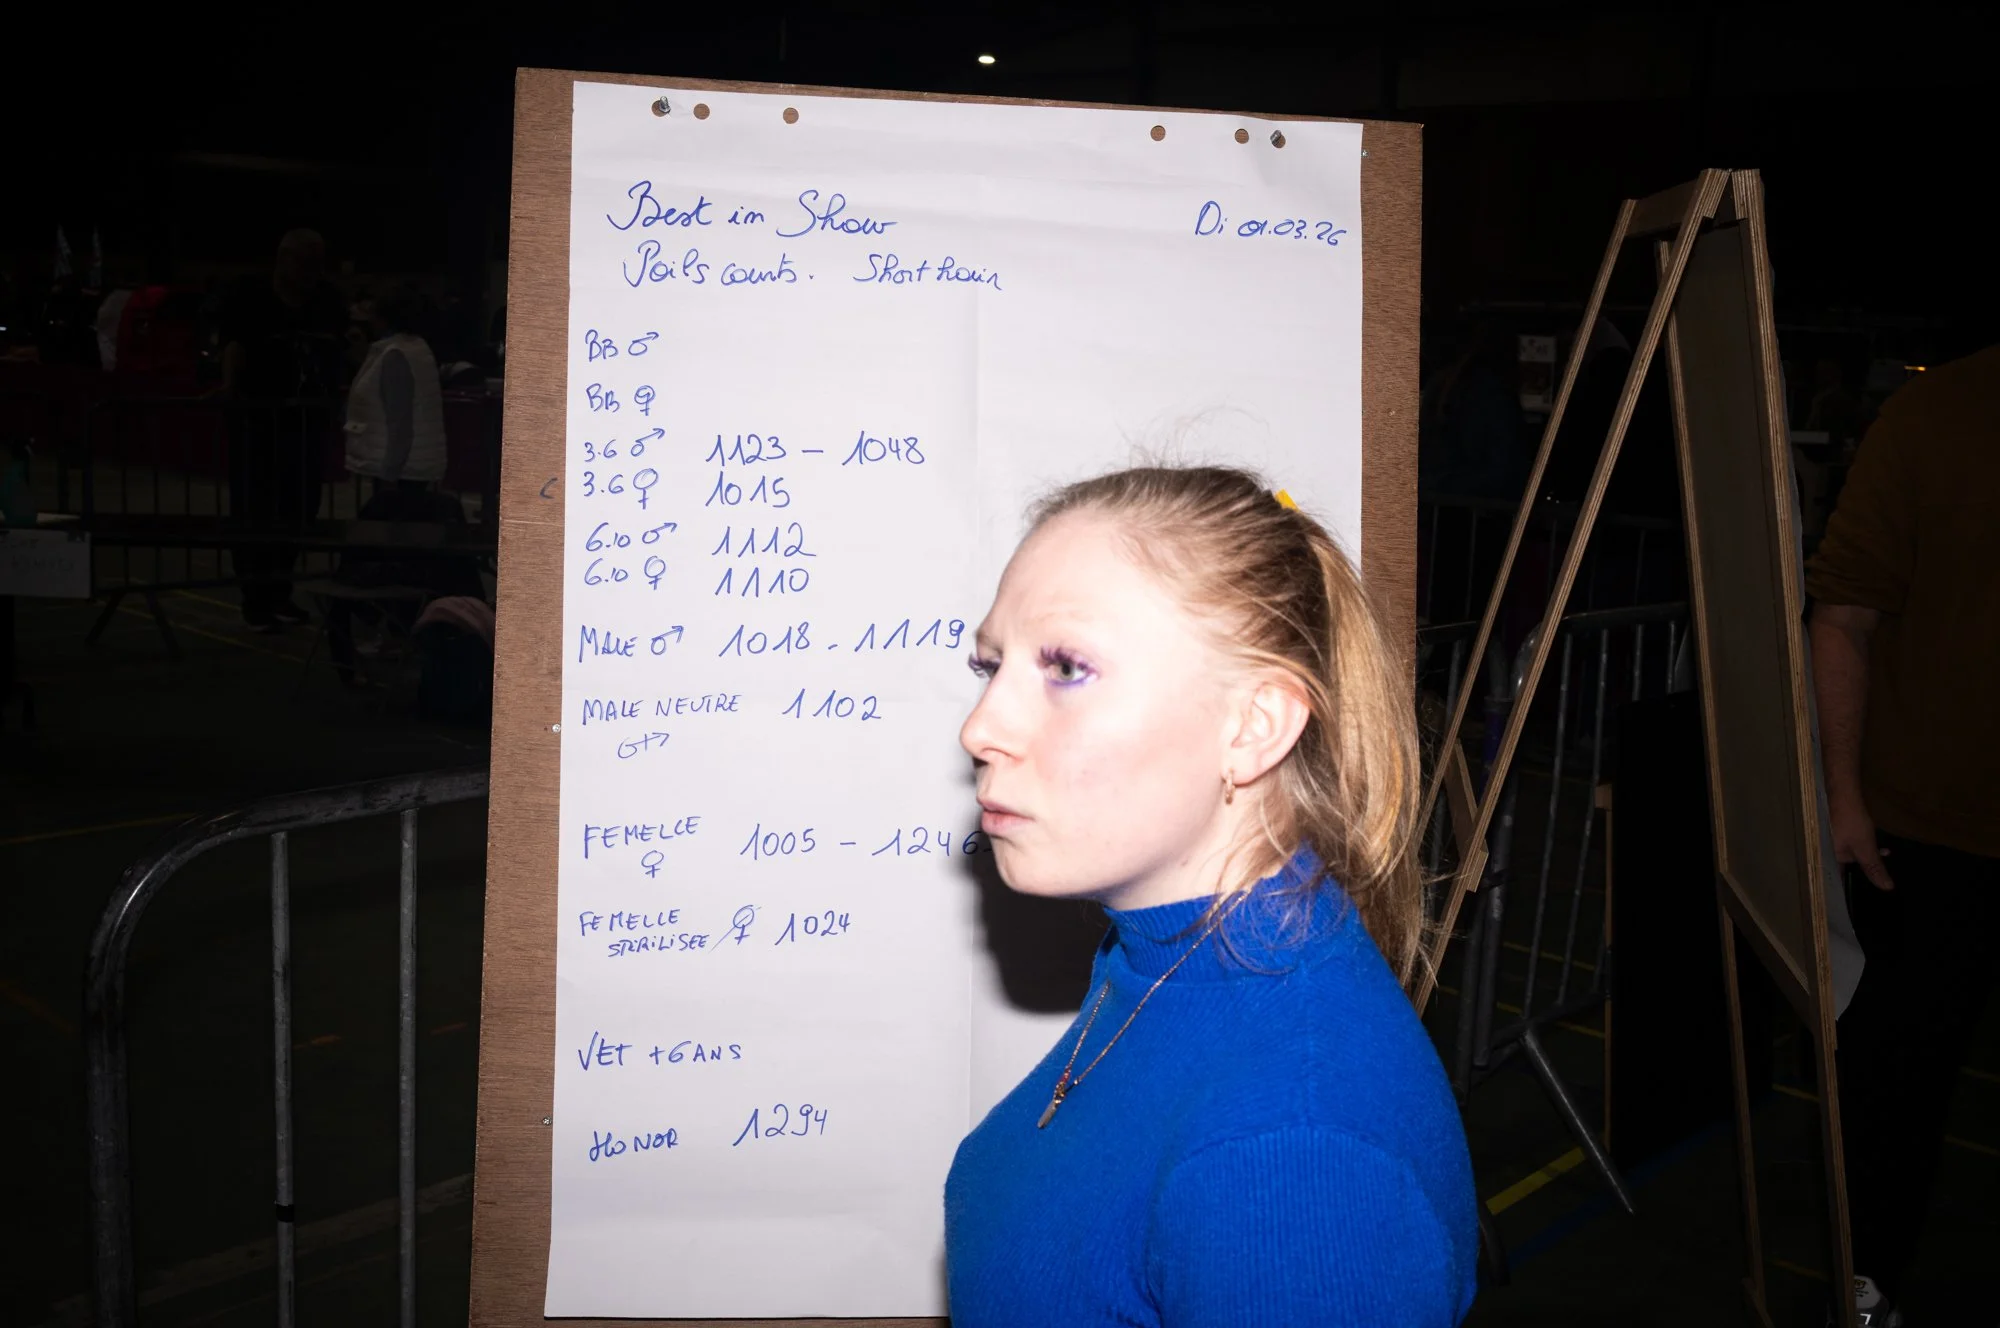 Best in Show
Di 01.03.26
Poils courts. Short hair
BB ♂
BB ♀
3.6 ♂ 1123 – 1048
3.6 ♀ 1015
6.10 ♂ 1112
6.10 ♀ 1110
MALE ♂ 1018 - 1119
MALE NEUTRE 1102
FEMELLE 1005 – 1246
♀
FEMELLE
STERILISEE ♀ 1024
VET +6 ANS
HONOR 1294